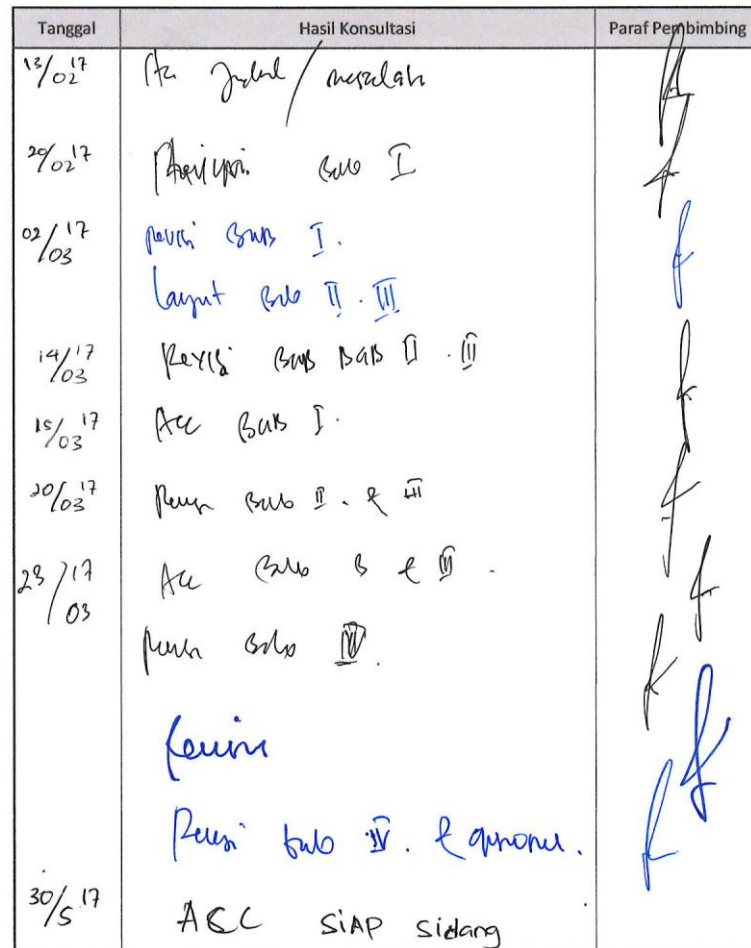 Tanggal Hasil Konsultasi Paraf Pembimbing
13/02 17 Acc Judul / masalah
20/02 17 Bab I
02/03 17 Revisi BAB I.
Layout Bab II . III
14/03 17 Revisi BAB II . III
15/03 17 Acc BAB I.
20/03 17 Revisi Bab II . & III
23/03 17 Acc Bab & III .
Revisi Bab IV.
Revisi
Revisi bab IV. &
30/5 17 ACC SIAP Sidang